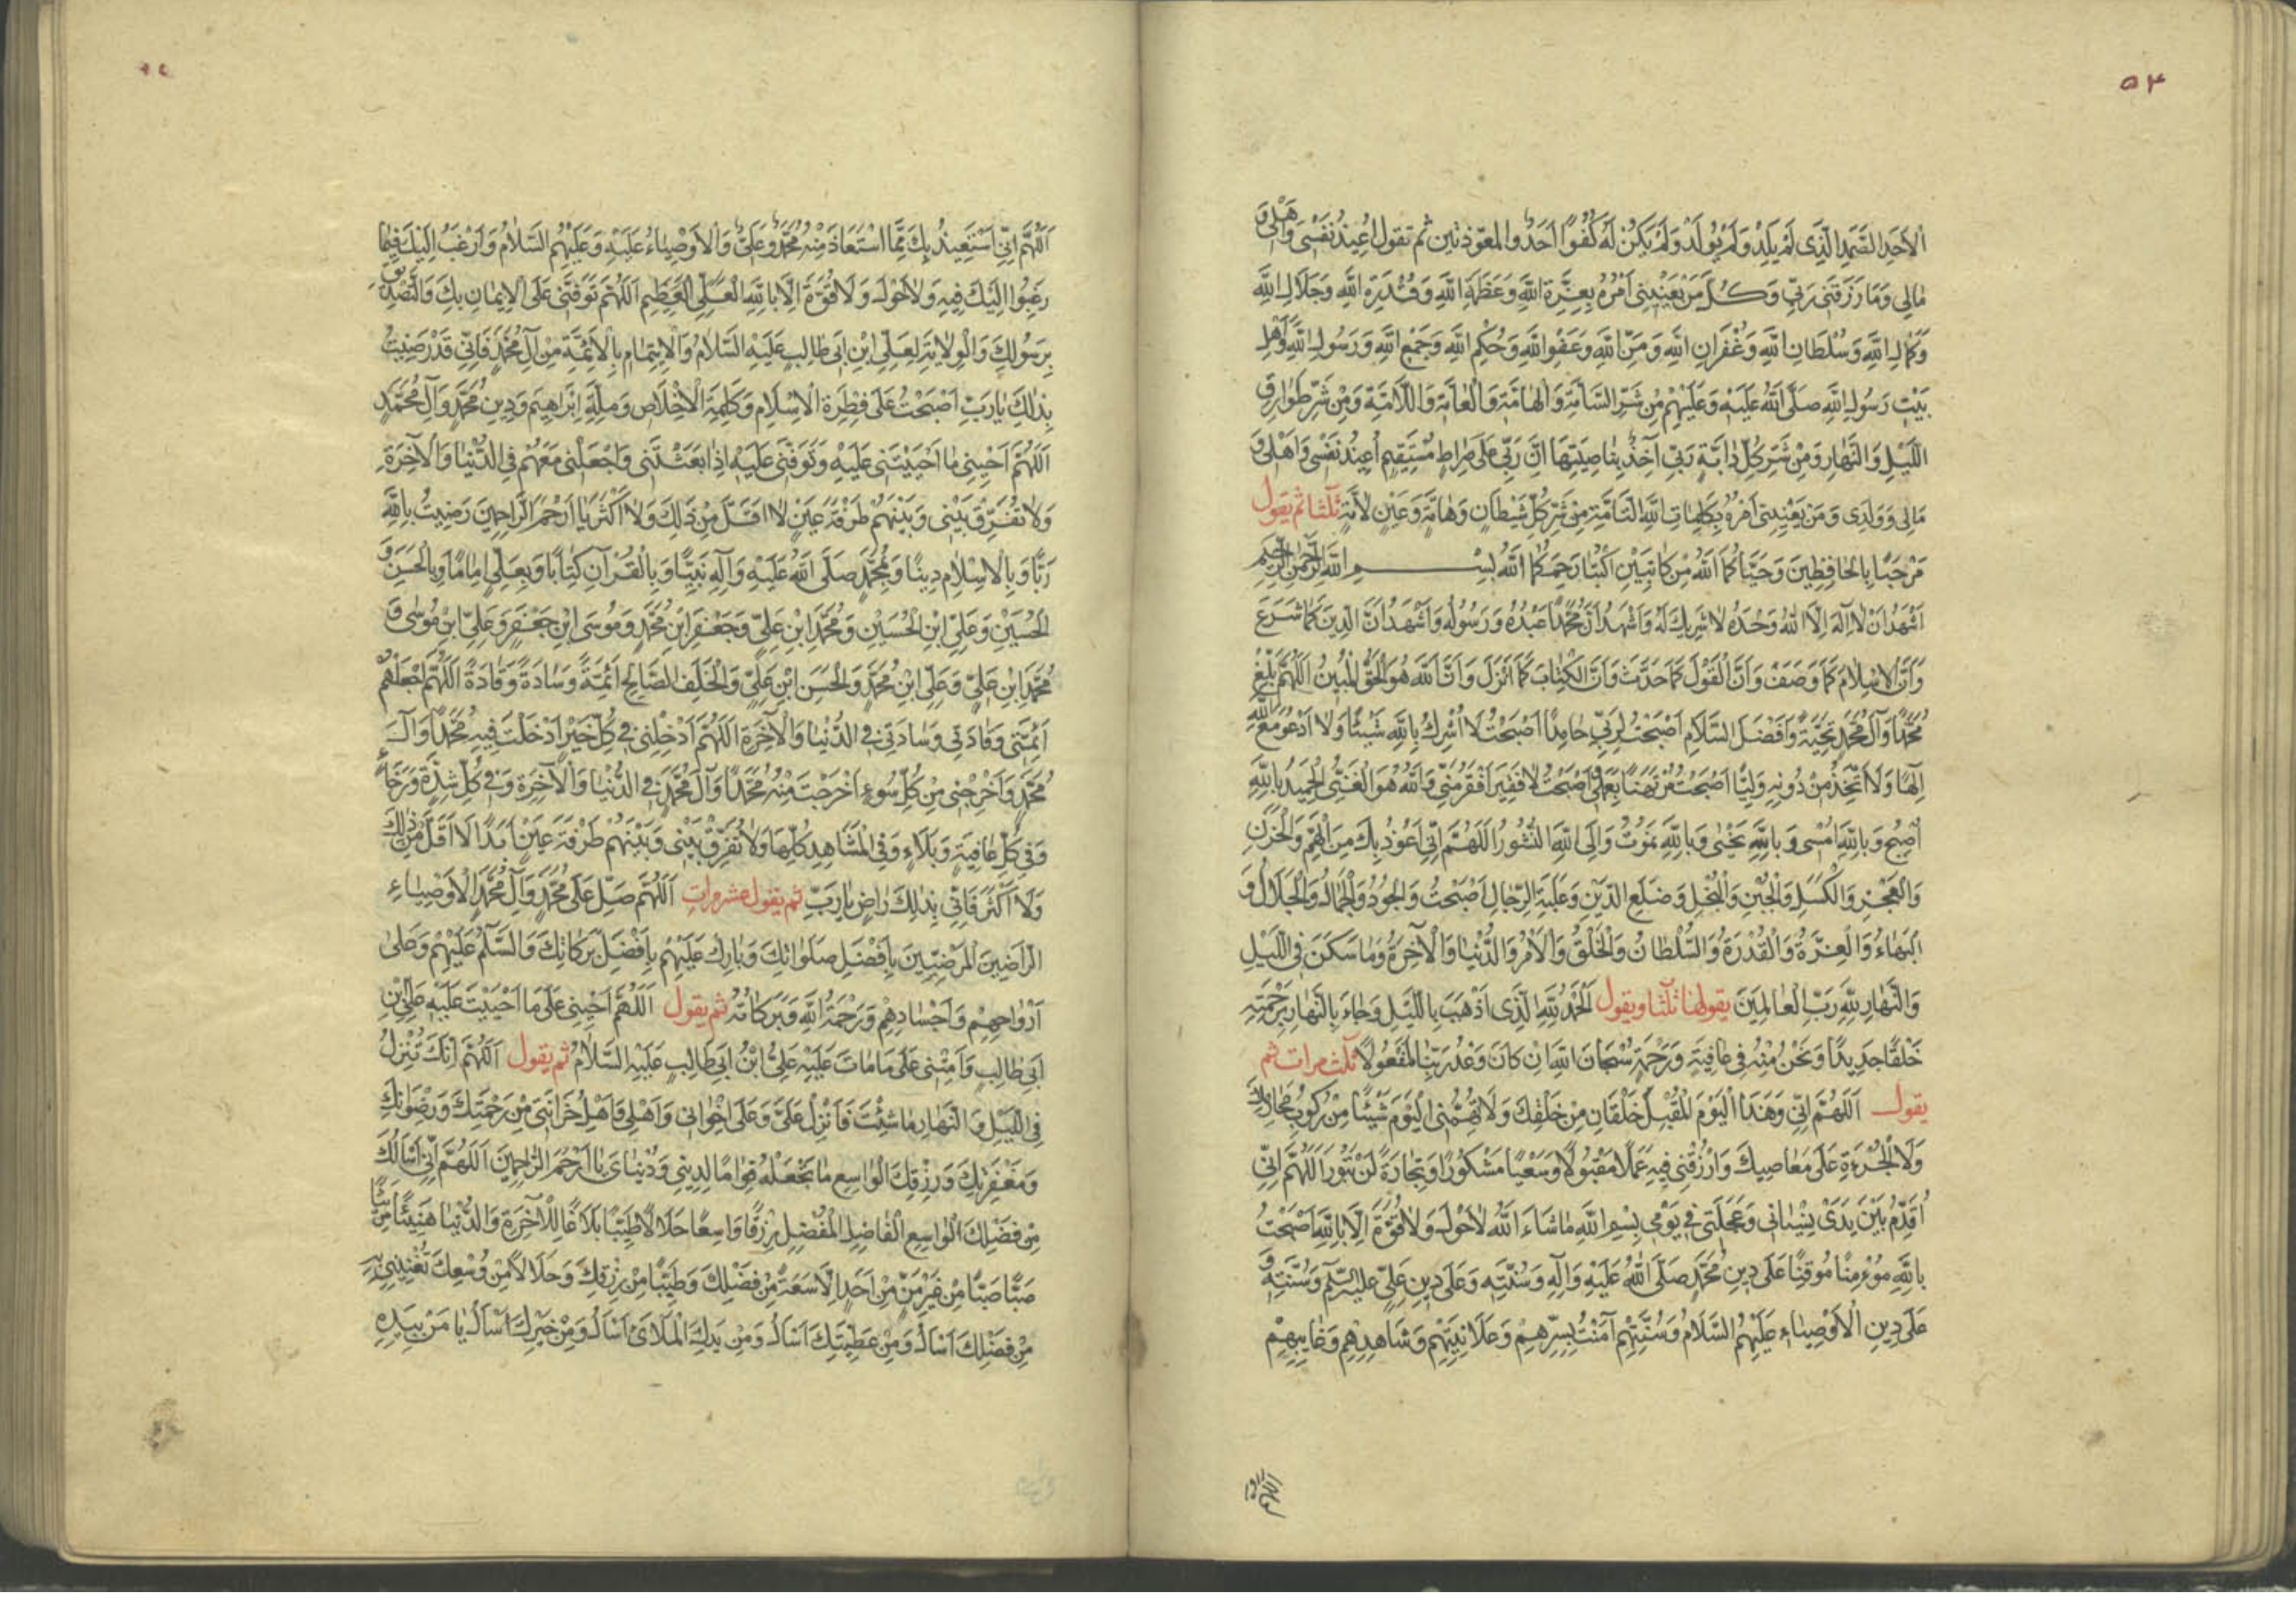 ٥٣
الْأَحَدِ الصَّمَدِ الَّذِي لَمْ يَلِدْ وَلَمْ يُولَدْ وَلَمْ يَكُنْ لَهُ كُفُوًا أَحَدٌ والمعوّذتين ثم تقول أُعِيذُ نَفْسِي وَأَهْلِي وَ
مَالِي وَمَا رَزَقَنِي رَبِّي وَكُلَّ مَنْ يَعْنِينِي أَمْرُهُ بِعِزَّةِ اللهِ وَعَظَمَةِ اللهِ وَقُدْرَةِ اللهِ وَجَلَالِ اللهِ
وَكَمَالِ اللهِ وَسُلْطَانِ اللهِ وَغُفْرَانِ اللهِ وَمَنِّ اللهِ وَعَفْوِ اللهِ وَحُكْمِ اللهِ وَجَمْعِ اللهِ وَرَسُولِ اللهِ وَأَهْلِ
بَيْتِ رَسُولِ اللهِ صَلَّى اللهُ عَلَيْهِ وَعَلَيْهِمْ مِنْ شَرِّ السَّامَّةِ وَالْهَامَّةِ وَالْعَامَّةِ وَاللَّامَّةِ وَمِنْ شَرِّ طَوَارِقِ
اللَّيْلِ وَالنَّهَارِ وَمِنْ شَرِّ كُلِّ دَابَّةٍ رَبِّي آخِذٌ بِنَاصِيَتِهَا إِنَّ رَبِّي عَلَى صِرَاطٍ مُسْتَقِيمٍ أُعِيذُ نَفْسِي وَأَهْلِي وَ
مَالِي وَوَلَدِي وَمَنْ يَعْنِينِي أَمْرُهُ بِكَلِمَاتِ اللهِ التَّامَّةِ مِنْ شَرِّ كُلِّ شَيْطَانٍ وَهَامَّةٍ وَعَيْنٍ لَامَّةٍ ثلثا ثم يقول
مَرْحَبًا بِالْحَافِظِينَ وَحَيَّاكُمَا اللهُ مِنْ كَاتِبَيْنِ اكْتُبَا رَحِمَكُمَا اللهُ بِسْمِ اللهِ الرَّحْمٰنِ الرَّحِيمِ
أَشْهَدُ أَنْ لَا إِلٰهَ إِلَّا اللهُ وَحْدَهُ لَا شَرِيكَ لَهُ وَأَشْهَدُ أَنَّ مُحَمَّدًا عَبْدُهُ وَرَسُولُهُ وَأَشْهَدُ أَنَّ الدِّينَ كَمَا شَرَعَ
وَأَنَّ الْإِسْلَامَ كَمَا وَصَفَ وَأَنَّ الْقَوْلَ كَمَا حَدَّثَ وَأَنَّ الْكِتَابَ كَمَا أَنْزَلَ وَأَنَّ اللهَ هُوَ الْحَقُّ الْمُبِينُ اللّٰهُمَّ بَلِّغْ
مُحَمَّدًا وَآلَ مُحَمَّدٍ تَحِيَّةً وَأَفْضَلَ السَّلَامِ أَصْبَحْتُ لِرَبِّي حَامِدًا أَصْبَحْتُ لَا أُشْرِكُ بِاللهِ شَيْئًا وَلَا أَدْعُو مَعَ اللهِ
إِلٰهًا وَلَا أَتَّخِذُ مِنْ دُونِهِ وَلِيًّا أَصْبَحْتُ مُرْتَهَنًا بِعَمَلِي أَصْبَحْتُ لَا فَقِيرَ أَفْقَرُ مِنِّي وَاللهُ هُوَ الْغَنِيُّ الْحَمِيدُ بِاللهِ
أُصْبِحُ وَبِاللهِ أُمْسِي وَبِاللهِ نَحْيٰى وَبِاللهِ نَمُوتُ وَإِلَى اللهِ النُّشُورُ اللّٰهُمَّ إِنِّي أَعُوذُ بِكَ مِنَ الْهَمِّ وَالْحُزْنِ
وَالْعَجْزِ وَالْكَسَلِ وَالْجُبْنِ وَالْبُخْلِ وَضَلَعِ الدَّيْنِ وَغَلَبَةِ الرِّجَالِ أَصْبَحْتُ وَالْجُودُ وَالْجَمَالُ وَالْجَلَالُ وَ
الْبَهَاءُ وَالْعِزَّةُ وَالْقُدْرَةُ وَالسُّلْطَانُ وَالْخَلْقُ وَالْأَمْرُ وَالدُّنْيَا وَالْآخِرَةُ وَمَا سَكَنَ فِي اللَّيْلِ
وَالنَّهَارِ لِلّٰهِ رَبِّ الْعَالَمِينَ يقولها ثلثا ويقول الْحَمْدُ لِلّٰهِ الَّذِي أَذْهَبَ بِاللَّيْلِ وَجَاءَ بِالنَّهَارِ بِرَحْمَتِهِ
خَلْقًا جَدِيدًا وَنَحْنُ مِنْهُ فِي عَافِيَةٍ وَرَحْمَةٍ سُبْحَانَ اللهِ إِنْ كَانَ وَعْدُ رَبِّنَا لَمَفْعُولًا ثلث مرات ثم
يقول اللّٰهُمَّ إِنِّي وَهٰذَا الْيَوْمَ الْمُقْبِلَ خَلْقَانِ مِنْ خَلْقِكَ وَلَا تُهِمَّنِي الْيَوْمَ شَيْئًا مِنْ رُكُوبِ مَحَارِمِكَ
وَلَا الْجُرْءَةِ عَلَى مَعَاصِيكَ وَارْزُقْنِي فِيهِ عَمَلًا مَقْبُولًا وَسَعْيًا مَشْكُورًا وَتِجَارَةً لَنْ تَبُورَ اللّٰهُمَّ إِنِّي
أُقَدِّمُ بَيْنَ يَدَيْ نِسْيَانِي وَعَجَلَتِي فِي يَوْمِي بِسْمِ اللهِ مَا شَاءَ اللهُ لَا حَوْلَ وَلَا قُوَّةَ إِلَّا بِاللهِ أَصْبَحْتُ
بِاللهِ مُؤْمِنًا مُوقِنًا عَلَى دِينِ مُحَمَّدٍ صَلَّى اللهُ عَلَيْهِ وَآلِهِ وَسُنَّتِهِ وَعَلَى دِينِ عَلِيٍّ عليه السّلم وَسُنَّتِهِ وَ
عَلَى دِينِ الْأَوْصِيَاءِ عَلَيْهِمُ السَّلَامُ وَسُنَّتِهِمْ آمَنْتُ بِسِرِّهِمْ وَعَلَانِيَتِهِمْ وَشَاهِدِهِمْ وَغَائِبِهِمْ
اللّٰهُمَّ إِنِّي
اللّٰهُمَّ إِنِّي أَسْتَعِيذُ بِكَ مِمَّا اسْتَعَاذَ مِنْهُ مُحَمَّدٌ وَعَلِيٌّ وَالْأَوْصِيَاءُ عَلَيْهِ وَعَلَيْهِمُ السَّلَامُ وَأَرْغَبُ إِلَيْكَ فِيمَا
رَغِبُوا إِلَيْكَ فِيهِ وَلَا حَوْلَ وَلَا قُوَّةَ إِلَّا بِاللهِ الْعَلِيِّ الْعَظِيمِ اللّٰهُمَّ تَوَفَّنِي عَلَى الْإِيمَانِ بِكَ وَالتَّصْدِيقِ
بِرَسُولِكَ وَالْوِلَايَةِ لِعَلِيِّ ابْنِ أَبِي طَالِبٍ عَلَيْهِ السَّلَامُ وَالْإِيتِمَامِ بِالْأَئِمَّةِ مِنْ آلِ مُحَمَّدٍ فَإِنِّي قَدْ رَضِيتُ
بِذٰلِكَ يَا رَبِّ أَصْبَحْتُ عَلَى فِطْرَةِ الْإِسْلَامِ وَكَلِمَةِ الْإِخْلَاصِ وَمِلَّةِ إِبْرَاهِيمَ وَدِينِ مُحَمَّدٍ وَآلِ مُحَمَّدٍ
اللّٰهُمَّ أَحْيِنِي مَا أَحْيَيْتَنِي عَلَيْهِ وَتَوَفَّنِي عَلَيْهِ إِذَا بَعَثْتَنِي وَاجْعَلْنِي مَعَهُمْ فِي الدُّنْيَا وَالْآخِرَةِ
وَلَا تُفَرِّقْ بَيْنِي وَبَيْنَهُمْ طَرْفَةَ عَيْنٍ لَا أَقَلَّ مِنْ ذٰلِكَ وَلَا أَكْثَرَ يَا أَرْحَمَ الرَّاحِمِينَ رَضِيتُ بِاللهِ
رَبًّا وَبِالْإِسْلَامِ دِينًا وَبِمُحَمَّدٍ صَلَّى اللهُ عَلَيْهِ وَآلِهِ نَبِيًّا وَبِالْقُرْآنِ كِتَابًا وَبِعَلِيٍّ إِمَامًا وَبِالْحَسَنِ وَ
الْحُسَيْنِ وَعَلِيِّ ابْنِ الْحُسَيْنِ وَمُحَمَّدِ ابْنِ عَلِيٍّ وَجَعْفَرِ ابْنِ مُحَمَّدٍ وَمُوسَى ابْنِ جَعْفَرٍ وَعَلِيِّ ابْنِ مُوسٰى وَ
مُحَمَّدِ ابْنِ عَلِيٍّ وَعَلِيِّ ابْنِ مُحَمَّدٍ وَالْحَسَنِ ابْنِ عَلِيٍّ وَالْخَلَفِ الصَّالِحِ أَئِمَّةً وَسَادَةً وَقَادَةً اللّٰهُمَّ اجْعَلْهُمْ
أَئِمَّتِي وَقَادَتِي وَسَادَتِي فِي الدُّنْيَا وَالْآخِرَةِ اللّٰهُمَّ أَدْخِلْنِي فِي كُلِّ خَيْرٍ أَدْخَلْتَ فِيهِ مُحَمَّدًا وَآلَ
مُحَمَّدٍ وَأَخْرِجْنِي مِنْ كُلِّ سُوءٍ أَخْرَجْتَ مِنْهُ مُحَمَّدًا وَآلَ مُحَمَّدٍ فِي الدُّنْيَا وَالْآخِرَةِ وَفِي كُلِّ شِدَّةٍ وَرَخَاءٍ
وَفِي كُلِّ عَافِيَةٍ وَبَلَاءٍ وَفِي الْمَشَاهِدِ كُلِّهَا وَلَا تُفَرِّقْ بَيْنِي وَبَيْنَهُمْ طَرْفَةَ عَيْنٍ أَبَدًا لَا أَقَلَّ مِنْ ذٰلِكَ
وَلَا أَكْثَرَ فَإِنِّي بِذٰلِكَ رَاضٍ يَا رَبِّ ثم يقول عشر مرات اللّٰهُمَّ صَلِّ عَلَى مُحَمَّدٍ وَآلِ مُحَمَّدٍ الْأَوْصِيَاءِ
الرَّاضِينَ الْمَرْضِيِّينَ بِأَفْضَلِ صَلَوَاتِكَ وَبَارِكْ عَلَيْهِمْ بِأَفْضَلِ بَرَكَاتِكَ وَالسَّلَمُ عَلَيْهِمْ وَعَلٰى
أَرْوَاحِهِمْ وَأَجْسَادِهِمْ وَرَحْمَةُ اللهِ وَبَرَكَاتُهُ ثم يقول اللّٰهُمَّ أَحْيِنِي عَلَى مَا أَحْيَيْتَ عَلَيْهِ عَلِيَّ ابْنَ
أَبِي طَالِبٍ وَأَمِتْنِي عَلَى مَا مَاتَ عَلَيْهِ عَلِيُّ ابْنُ أَبِي طَالِبٍ عَلَيْهِ السَّلَامُ ثم يقول اللّٰهُمَّ إِنَّكَ تُنْزِلُ
فِي اللَّيْلِ وَالنَّهَارِ مَا شِئْتَ فَأَنْزِلْ عَلَيَّ وَعَلَى إِخْوَانِي وَأَهْلِي وَأَهْلِ حُزَانَتِي مِنْ رَحْمَتِكَ وَرِضْوَانِكَ
وَمَغْفِرَتِكَ وَرِزْقِكَ الْوَاسِعِ مَا تَجْعَلُهُ قِوَامًا لِدِينِي وَدُنْيَايَ يَا أَرْحَمَ الرَّاحِمِينَ اللّٰهُمَّ إِنِّي أَسْأَلُكَ
مِنْ فَضْلِكَ الْوَاسِعِ الْفَاضِلِ الْمُفْضِلِ رِزْقًا وَاسِعًا حَلَالًا طَيِّبًا بَلَاغًا لِلْآخِرَةِ وَالدُّنْيَا هَنِيئًا مَرِيئًا
صَبًّا صَبًّا مِنْ غَيْرِ مَنٍّ مِنْ أَحَدٍ إِلَّا سَعَةً مِنْ فَضْلِكَ وَطَيِّبًا مِنْ رِزْقِكَ وَحَلَالًا مِنْ وُسْعِكَ تُغْنِينِي بِهِ
مِنْ فَضْلِكَ أَسْأَلُ وَمِنْ عَطِيَّتِكَ أَسْأَلُ وَمِنْ يَدِكَ الْمَلْأٰى أَسْأَلُ وَمِنْ خَيْرِكَ أَسْأَلُ يَا مَنْ بِيَدِهِ